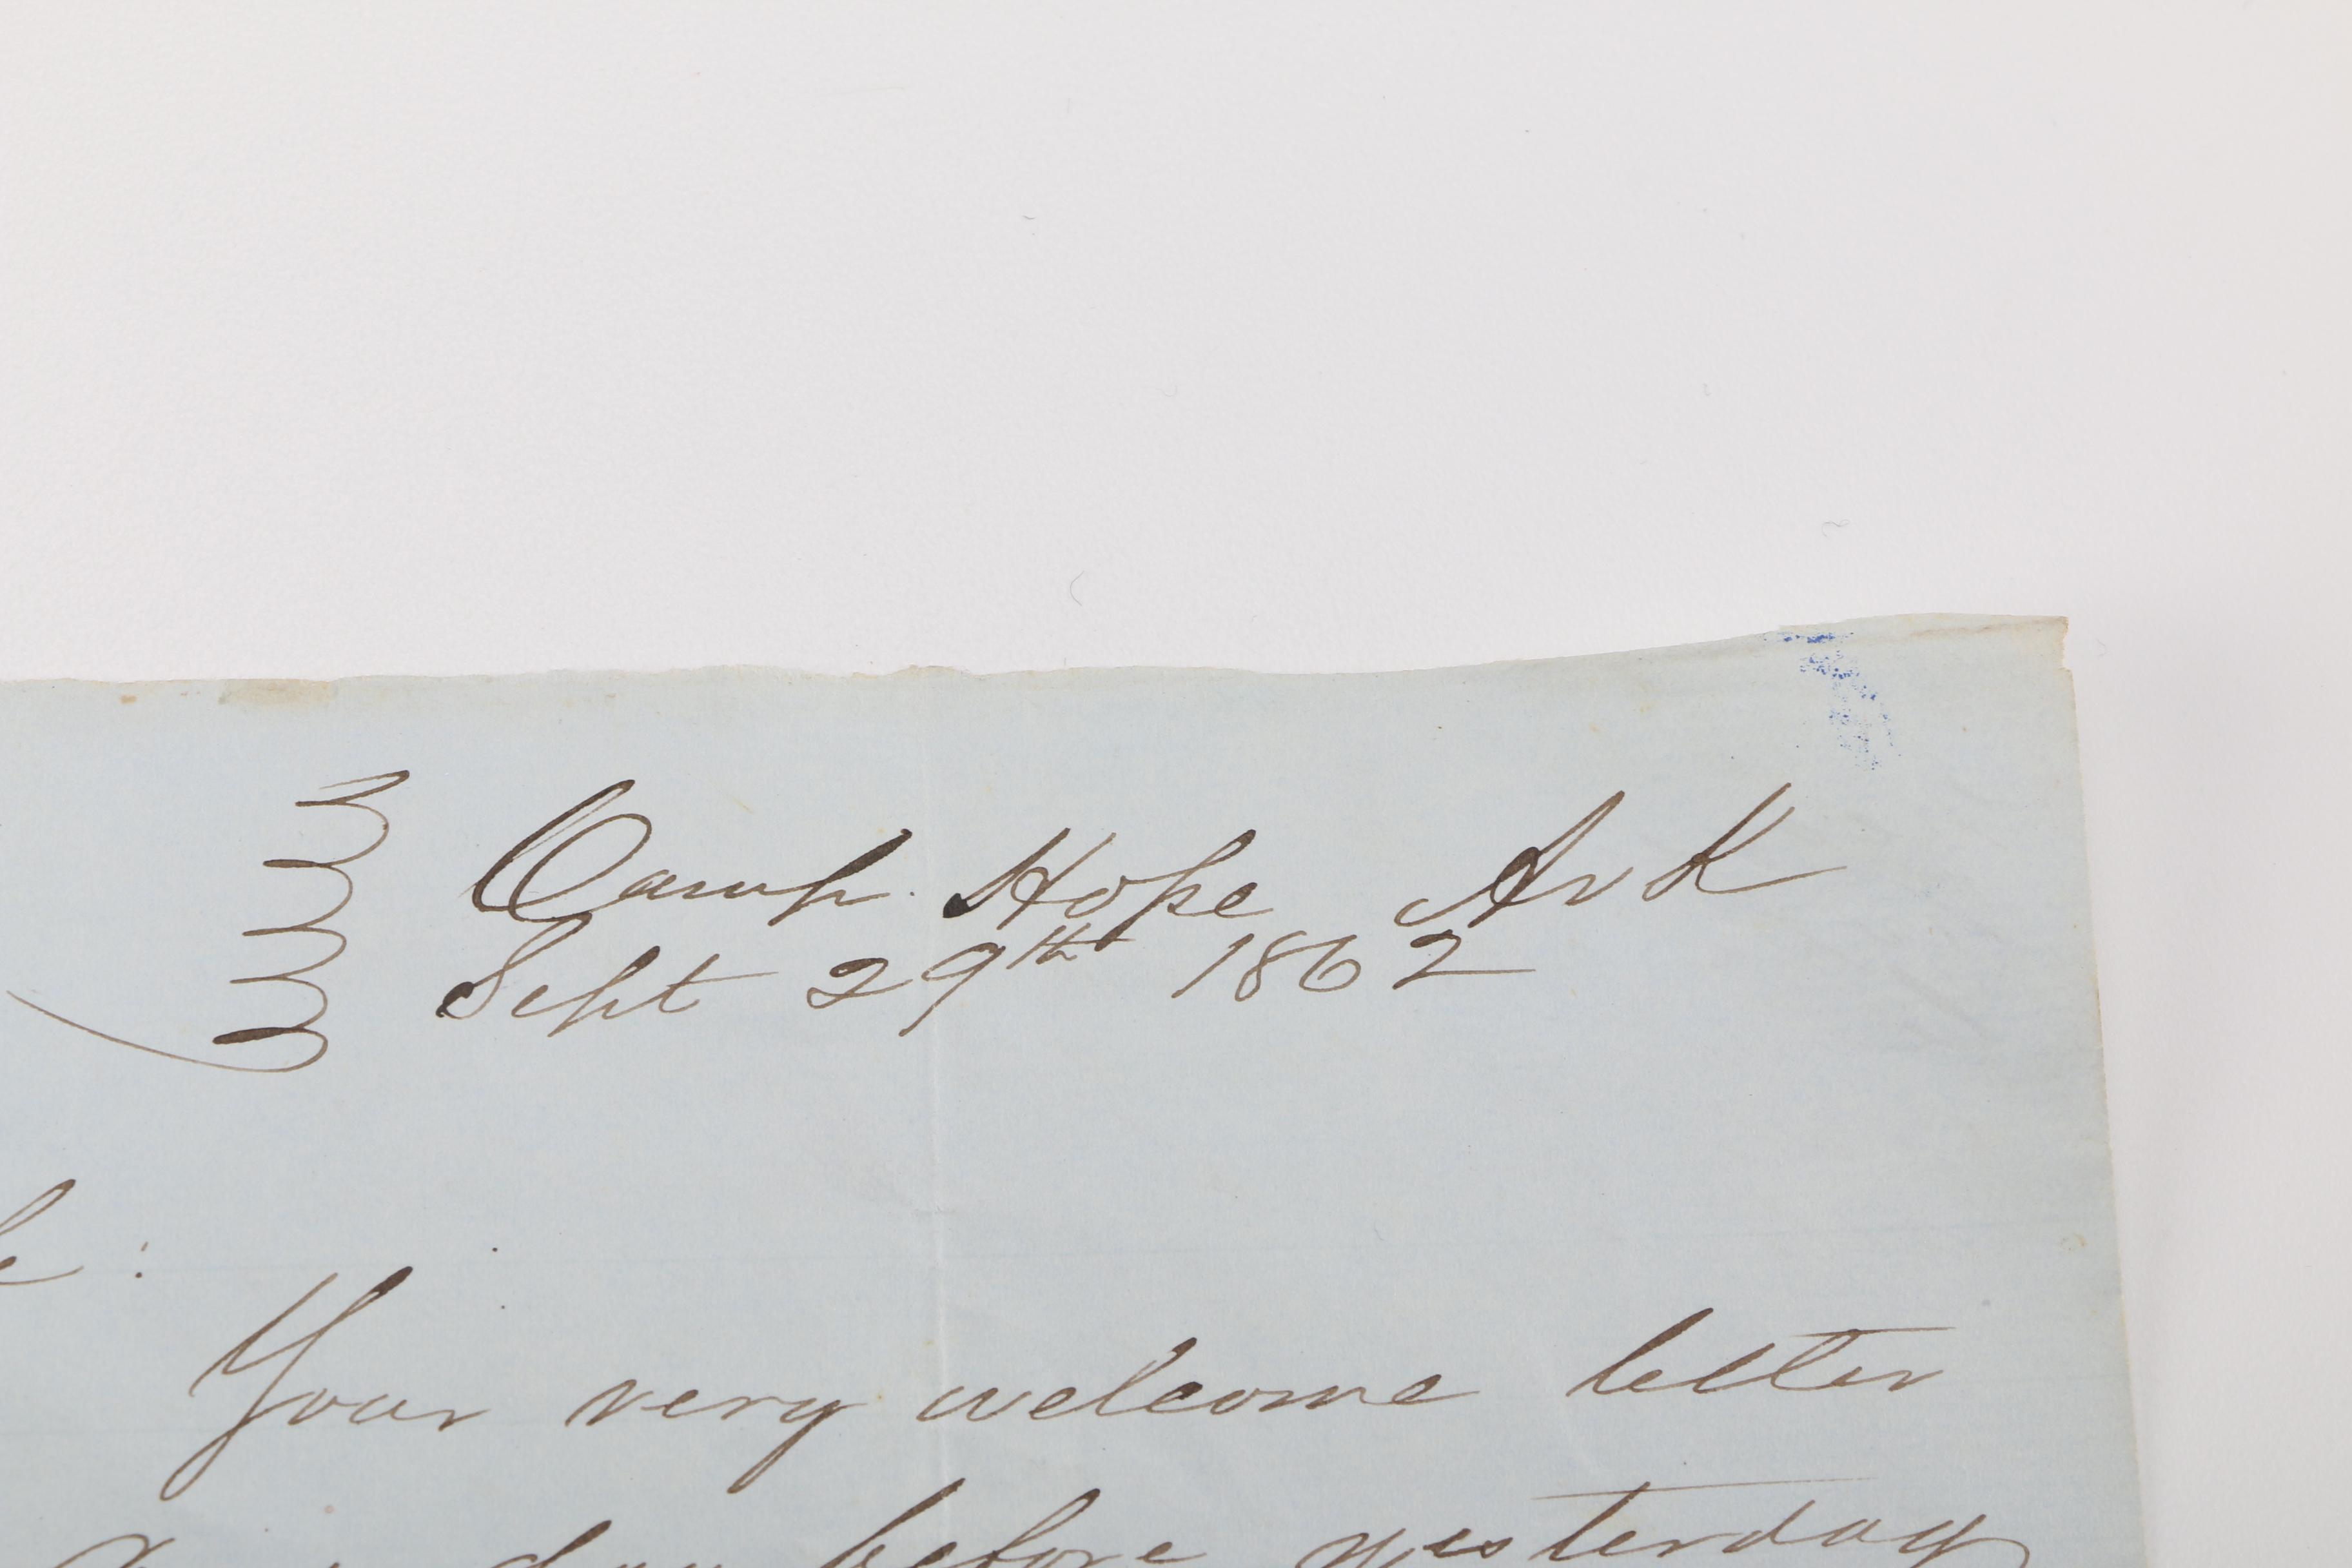 Camp Hope Ark
Sept 29th 1862
Your very welcome letter
day before yesterday